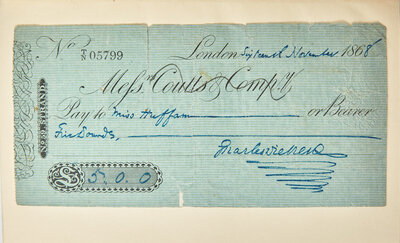 No 05799 London Fifteenth November 1868
Messrs Coutts & Compy
Pay to Miss Huffam or Bearer
Five Pounds,
Charles Dickens
£ 5.0.0